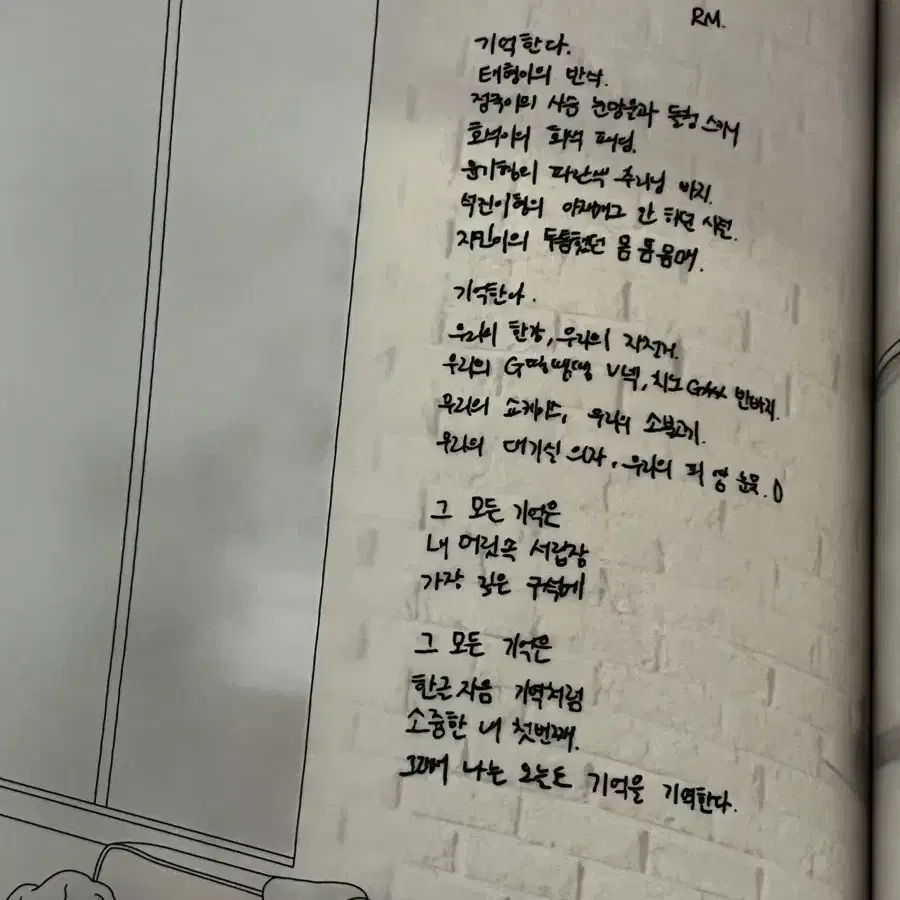 RM.
기억한다.
태형이의 반삭.
정국이의 사슴 눈망울과 돌청 스키니
호석이의 회색 패딩.
윤기형의 파란색 츄리닝 바지.
석진이형의 아재개그 안 하던 시절.
지민이의 두툼했던 몸몸몸매.
기억한다.
우리의 한강, 우리의 자전거.
우리의 V넥, 치노 반바지.
우리의 쇼케이스, 우리의 소불고기.
우리의 대기실 의자, 우리의 피 땀 눈물.
그 모든 기억은
내 머릿속 서랍장
가장 깊은 구석에
그 모든 기억은
한글 자음 기역처럼
소중한 내 첫번째.
그래서 나는 오늘도 기억을 기억한다.